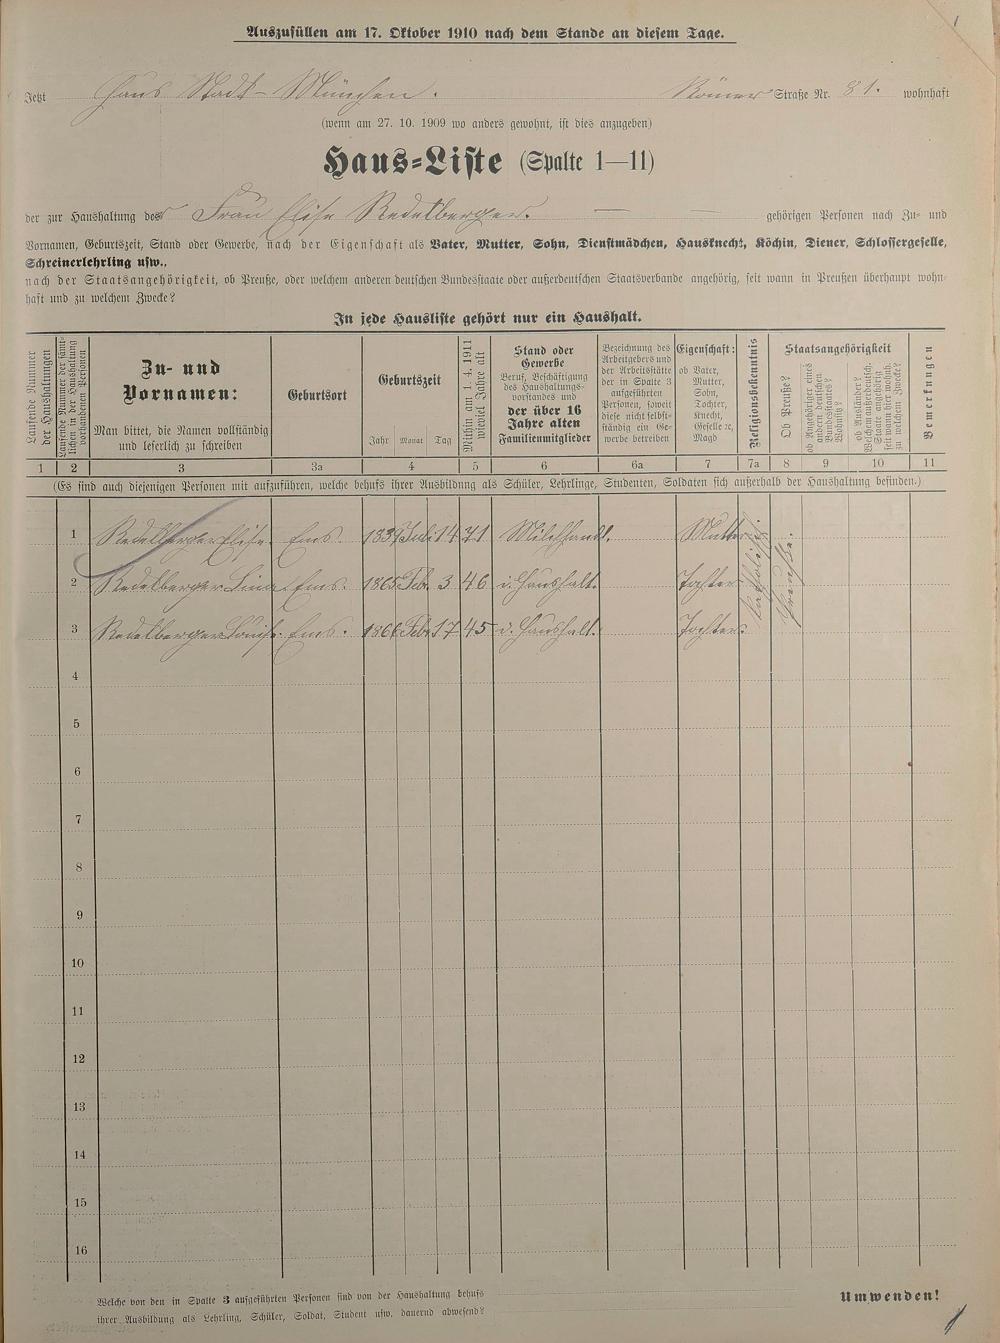 Auszufüllen am 17. Oktober 1910 nach dem Stande an diesem Tage.
Jetzt Haus Stadt-München. Römer Straße Nr. 81. wohnhaft
(wenn am 27. 10. 1909 wo anders gewohnt, ist dies anzugeben)
Haus-Liste (Spalte 1—11)
der zur Haushaltung der Frau Elise Redelberger. — — gehörigen Personen nach Zu- und
Vornamen, Geburtszeit, Stand oder Gewerbe, nach der Eigenschaft als Vater, Mutter, Sohn, Dienstmädchen, Hausknecht, Köchin, Diener, Schlossergeselle,
Schreinerlehrling usw.,
nach der Staatsangehörigkeit, ob Preuße, oder welchem anderen deutschen Bundesstaate oder außerdeutschen Staatsverbande angehörig, seit wann in Preußen überhaupt wohn-
haft und zu welchem Zwecke?
In jede Hausliste gehört nur ein Haushalt.
Laufende Nummer
der Haushaltungen
Laufende Nummer der sämt-
lichen in der Haushaltung
vorhandenen Personen
Zu- und
Vornamen:
Man bittet, die Namen vollständig
und leserlich zu schreiben
Geburtsort
Geburtszeit
Jahr Monat Tag
Mithin am 1. 4. 1911
wieviel Jahre alt
Stand oder
Gewerbe
Beruf, Beschäftigung
des Haushaltungs-
vorstandes und
der über 16
Jahre alten
Familienmitglieder
Bezeichnung des
Arbeitgebers und
der Arbeitsstätte
der in Spalte 3
aufgeführten
Personen, soweit
diese nicht selbst-
ständig ein Ge-
werbe betreiben
Eigenschaft:
ob Vater,
Mutter,
Sohn,
Tochter,
Knecht,
Geselle ꝛc,
Magd
Religionsbekenntnis
Staatsangehörigkeit
Ob Preuße?
ob Angehöriger eines
andern deutschen
Bundesstaates?
Woher?
ob Ausländer?
Welchem außerdeutsch.
Staate angehörig
seit wann hier wohnh.
zu welchem Zwecke?
Bemerkungen
1 2 3 3a 4 5 6 6a 7 7a 8 9 10 11
(Es sind auch diejenigen Personen mit aufzuführen, welche behufs ihrer Ausbildung als Schüler, Lehrlinge, Studenten, Soldaten sich außerhalb der Haushaltung befinden.)
1 Redelberger Elise. Ems. 1839 Juli 14 71 Milchhandl. Mutter katholisch Preuße.
2 Redelberger Lina. Ems. 1865 Feb. 3 46 i. Haushalt. Tochter
3 Redelberger Louise. Ems. 1866 Febr. 17 45 i. Haushalt. Tochter.
4
5
6
7
8
9
10
11
12
13
14
15
16
Welche von den in Spalte 3 aufgeführten Personen sind von der Haushaltung behufs
ihrer Ausbildung als Lehrling, Schüler, Soldat, Student usw. dauernd abwesend?
Umwenden!